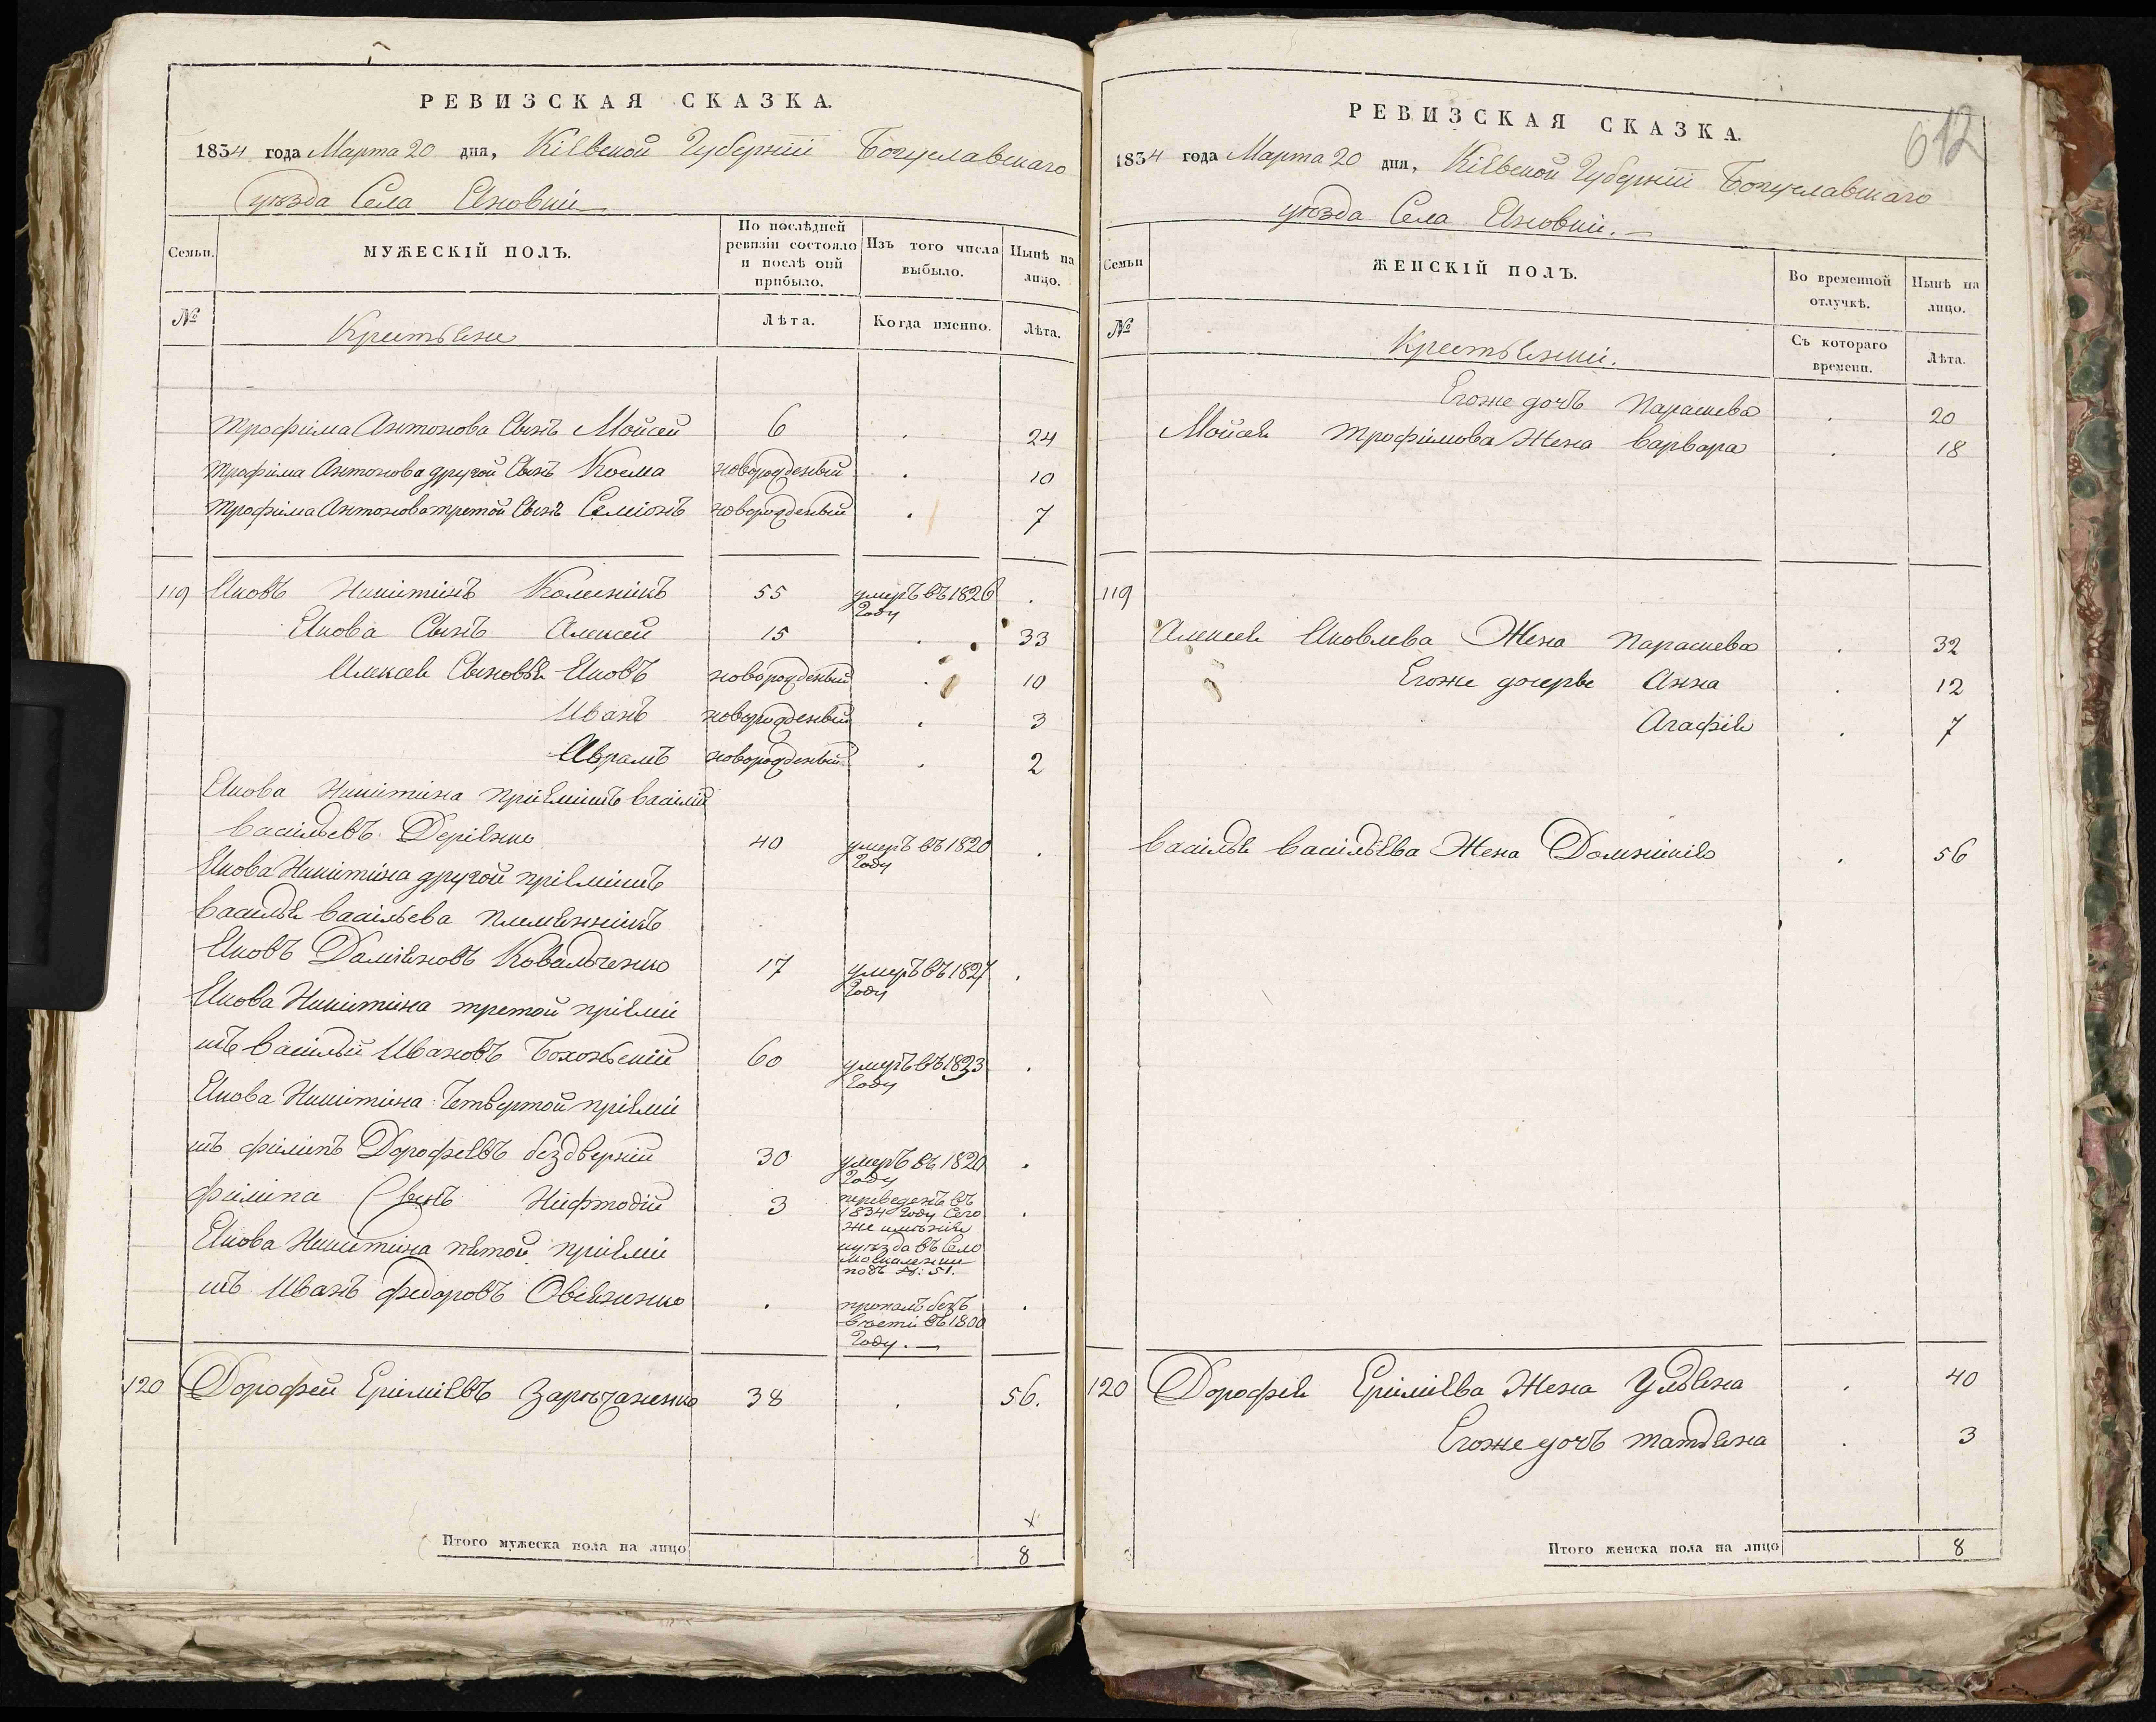 РЕВИЗСКАЯ СКАЗКА.
1834 года Марта 20 дня, Кіевской Губерніи Богуславскаго
уѣзда Села Яновки
Семьи. МУЖЕСКІЙ ПОЛЪ. По послѣдней ревизіи состояло и послѣ оній прибыло. Изъ того числа выбыло. Нынѣ на лицо.
№ Крестьяне Лѣта. Когда именно. Лѣта.
Трофима Антонова Сынъ Мойсей 6 . 24
Трофима Антонова другой Сынъ Косма новорожденый . 10
Трофима Антонова третой Сынъ Семіонъ новорожденый . 7
119 Яковъ Никитинъ Колесникъ 55 умеръ въ 1826 Году .
Якова Сынъ Алексей 15 . 33
Алексея Сыновья Яковъ новорожденый . 10
Иванъ новорожденый . 3
Аврамъ новорожденый . 2
Якова Никитина пріемишъ василій
васильевъ Деріенко 40 умеръ въ 1820 Году .
Якова Никитина другой пріемишъ
василья васильева племянникъ
Яковъ Даміяновъ Ковальченко 17 умеръ въ 1827 Году .
Якова Никитина третой пріеми
шъ василій Ивановъ 60 умеръ въ 1823 Году .
Якова Никитина Четвертой пріеми
шъ филипъ Дорофеевъ бездверній 30 умеръ въ 1820 Году .
филипа Сынъ Нифтодій 3 переведенъ въ 1834 Году Сего же имѣнія уѣзда въ Село Москаленки подъ №: 51. .
Якова Никитина пятой пріеми
шъ Иванъ федоровъ Овсіяненко . пропалъ безъ вѣсти въ 1800 Году. .
120 Дорофей Ериміевъ Зарѣчаненко 38 . 56.
х
Итого мужеска пола на лицо 8
612
РЕВИЗСКАЯ СКАЗКА.
1834 года Марта 20 дня, Кіевской Губерніи Богуславскаго
уѣзда Села Яновки.
Семьи ЖЕНСКІЙ ПОЛЪ. Во временной отлучкѣ. Нынѣ на лицо.
№ Крестьянки. Съ котораго времени. Лѣта.
Егоже дочь Параскева . 20
Мойсея Трофимова Жена варвара . 18
119
Алексея Яковлева Жена Параскева . 32
Егоже дочерье Анна . 12
Агафія . 7
василья васильева Жена Домникія . 56
120 Дорофея Ериміева Жена Ульяна . 40
Егоже дочь татьяна . 3
Итого женска пола на лицо 8